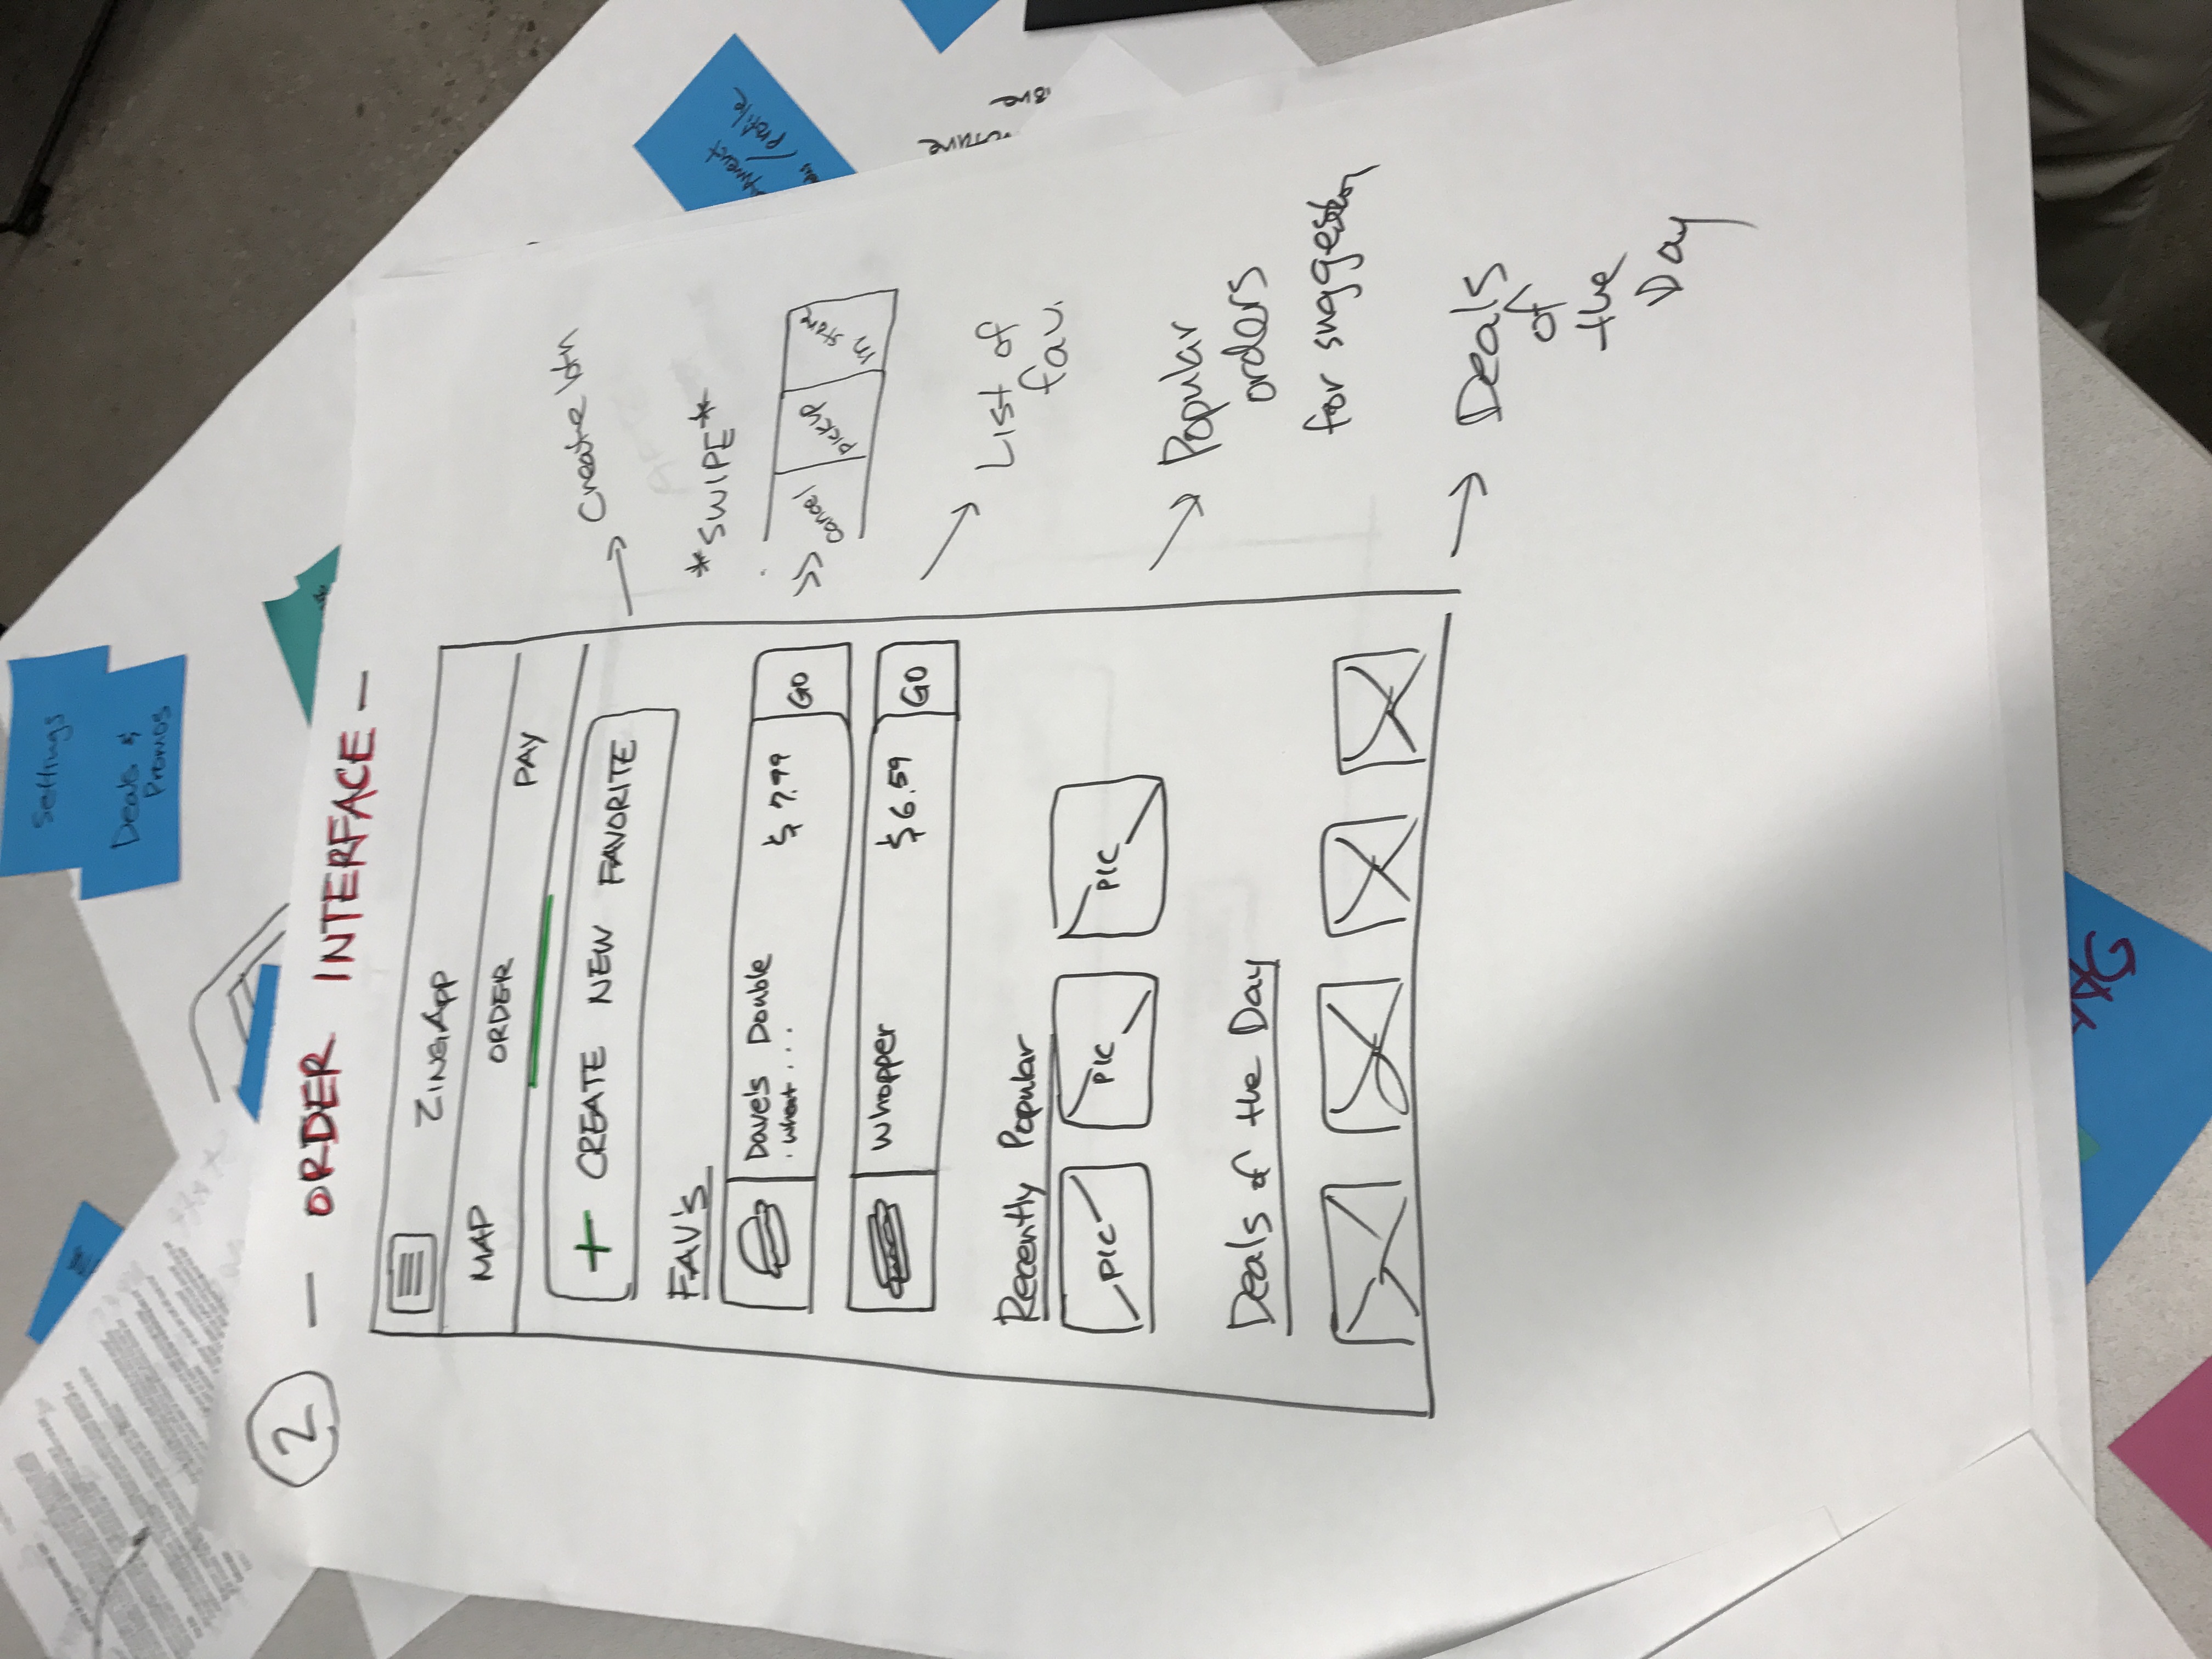 Settings
Deals &
Promos
2 — ORDER INTERFACE —
ZINGAPP
MAP ORDER PAY
+ CREATE NEW FAVORITE
FAV'S
Dave's Double $7.99 GO
. wheat ...
Whopper $6.59 GO
Recently Popular
PIC PIC PIC
Deals of the Day
Create btn
*SWIPE*
cancel pickup in store
List of
fav.
Popular
orders
for suggestion
Deals
of
the
Day
/profile